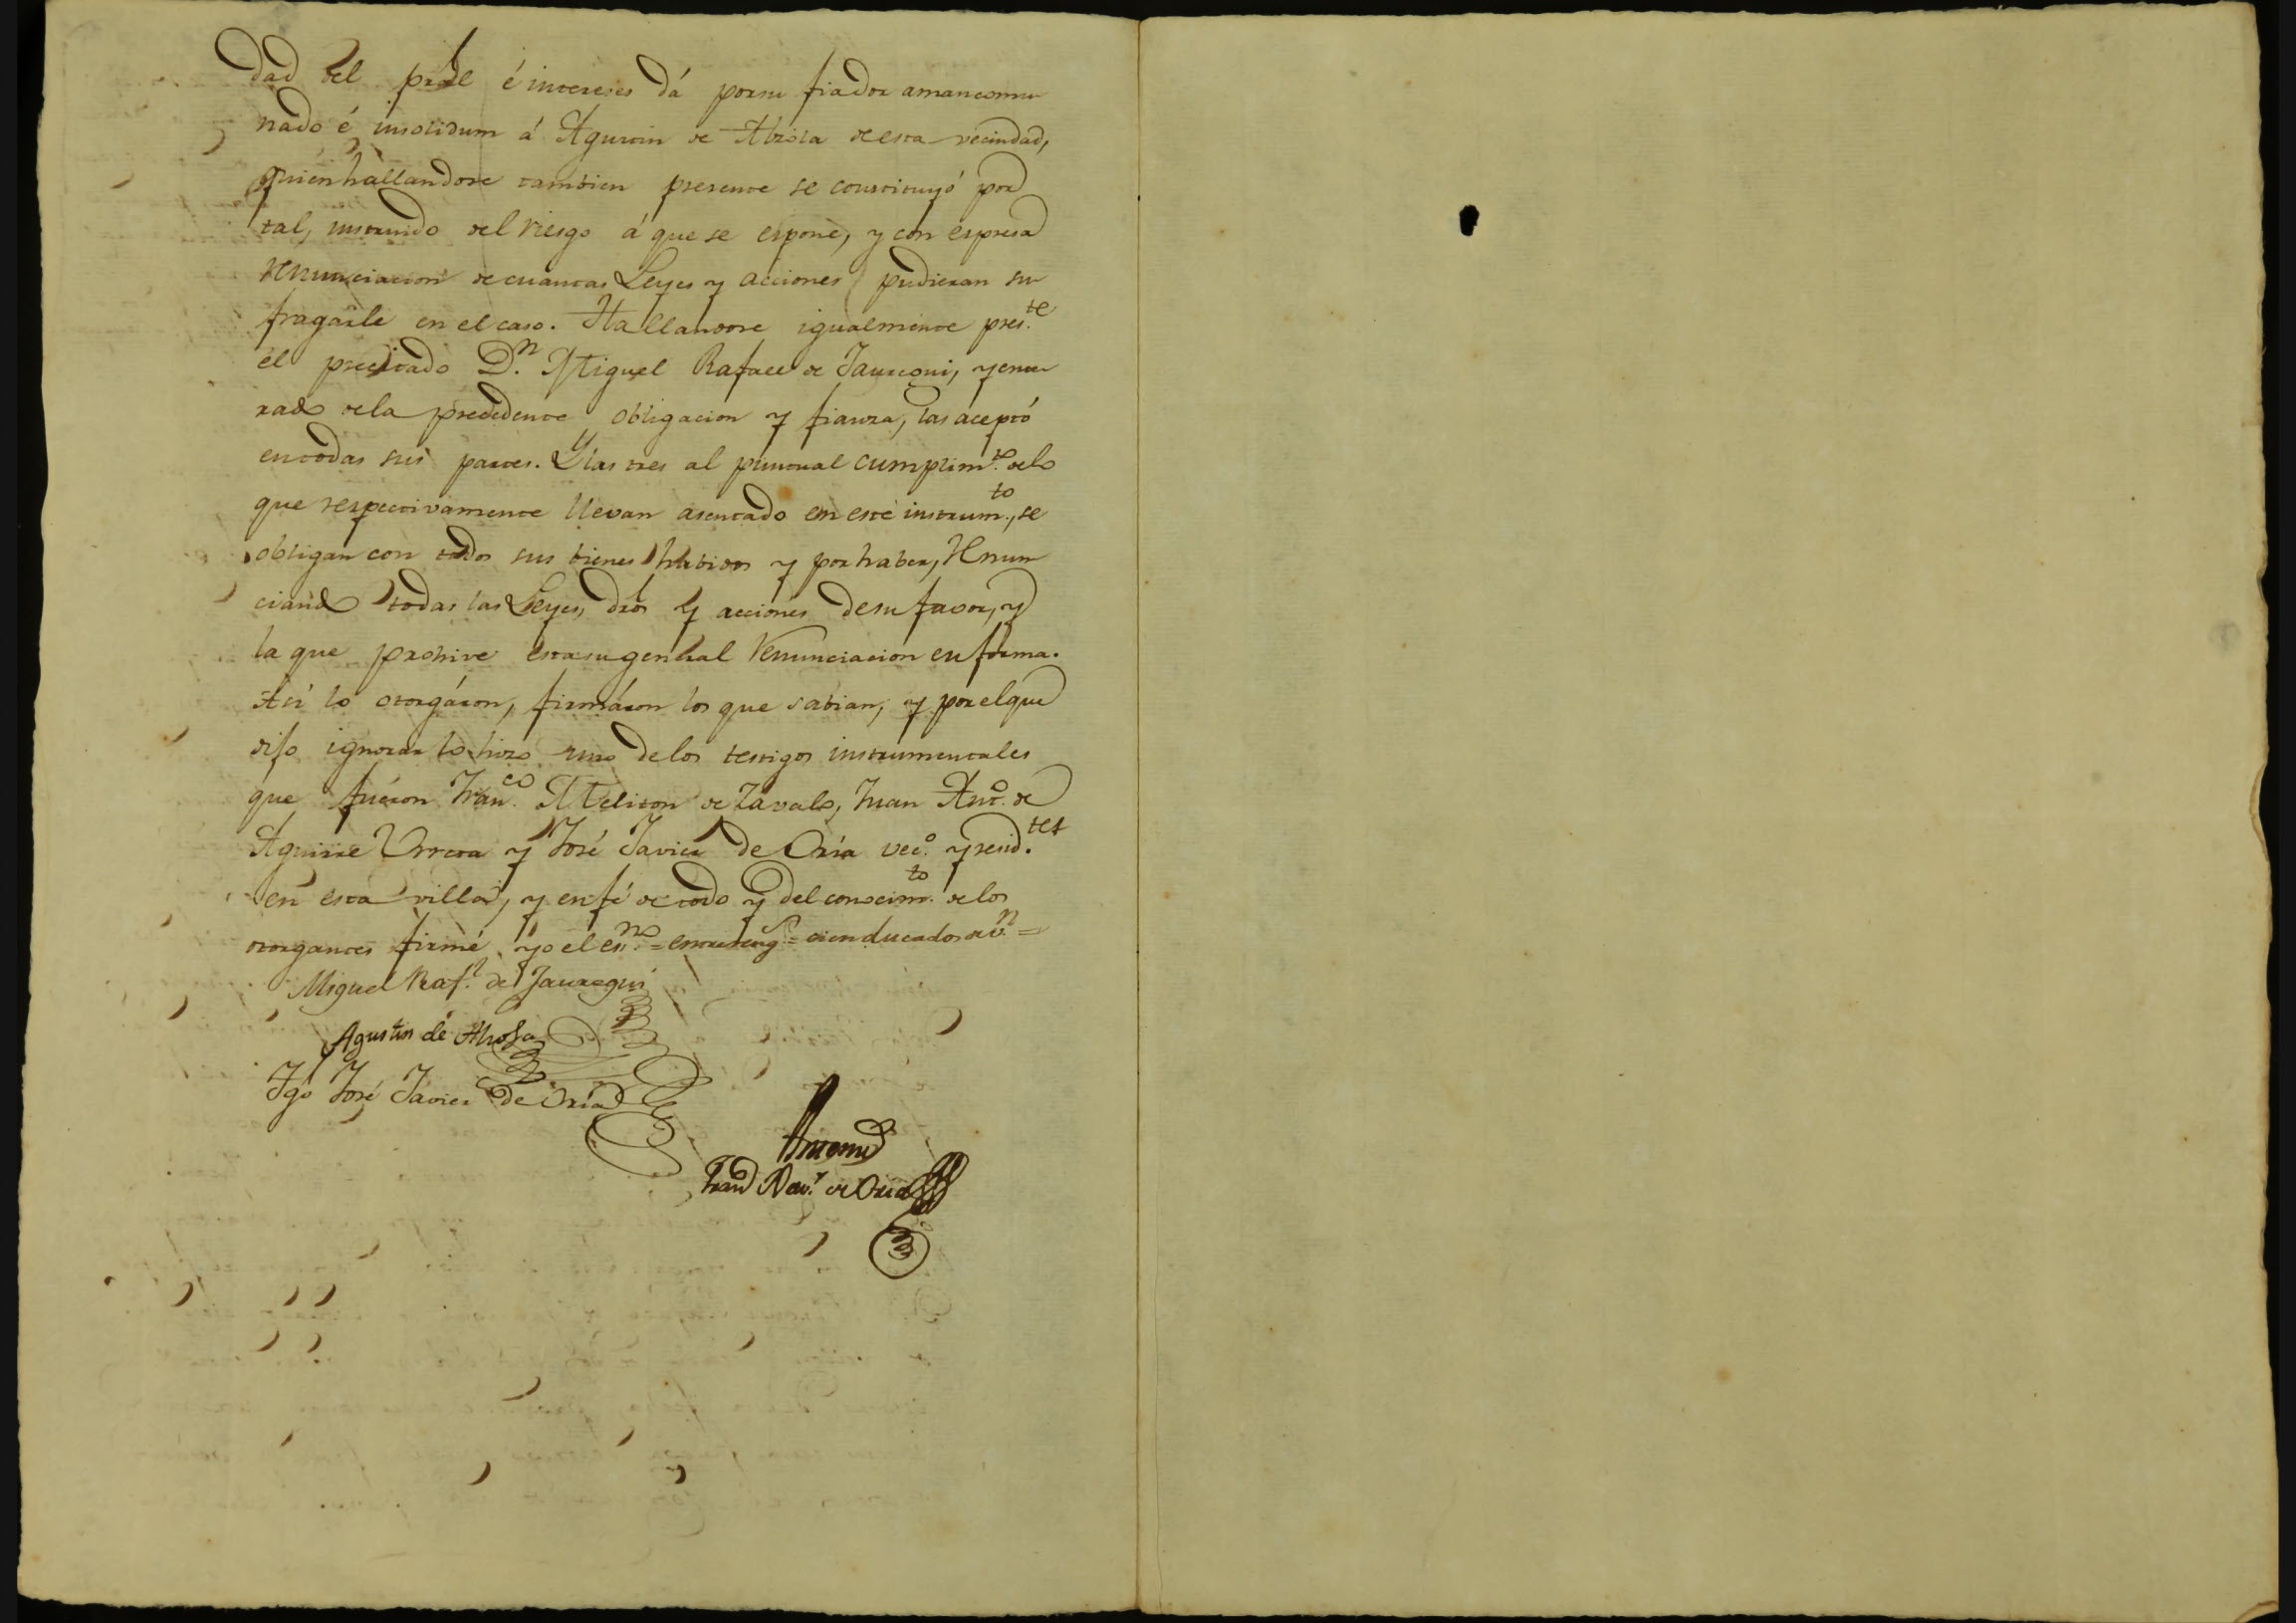 dad del pral é intereses dá por su fiador amancomu
nado é insolidum á Agustin de Abrista de esta vecindad,
quien hallandose tambien presente se constituyó por
tal, instruido del riesgo á que se espone, y con espresa
renunciacion de cuantas Leyes y acciones pudieran su
fragarle en el caso. Hallandose igualmente pres.te
el precitado D.n Miguel Rafael de Jauregui, y ente
rado de la precedente obligacion y fianza, las aceptó
en todas sus partes. Y las tres al puntual cumplim.to de lo
que respectivamente llevan asentado en este instrum.to, se
obligan con todos sus bienes habidos y por haber, renun
ciando todas las Leyes, dros y acciones de su favor, y
la que prohive esta su genral renunciacion en forma.
Asi lo otorgáron, firmáron los que sabian, y por el que
dijo ignorar lo hizo uno de los testigos instrumentales
que fuéron Fran.co Meliton de Zavalo, Juan Ant.o de
Aguirre Urreta y José Javier de Oria vec.o y resid.tes
en esta villa, y en fé de todo y del conocim.to de los
otorgantes firmé yo el es.no = entrereng.s = cien ducados de v.n =
Miguel Raf.l de Jauregui
Agustin de
Tgo José Javier de Oria
Antemi
Fran.co Xav.r de Oria